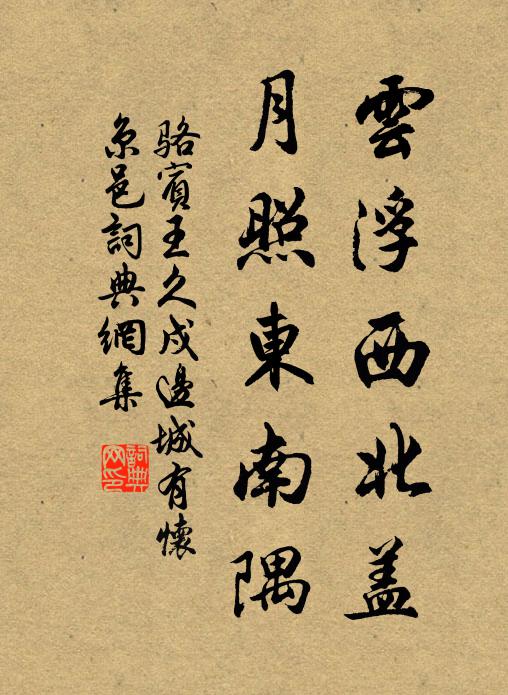 雲浮西北盖
月照東南隅
駱賓王久戍邊城有懷
京邑詞典網集
詞典网印